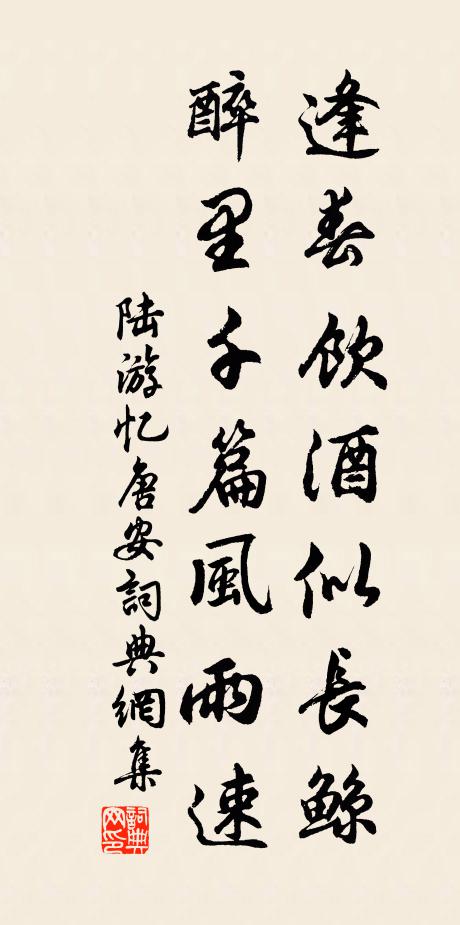 逢春飲酒似長鯨
醉里千篇風雨速
陆游忆唐安詞典網集
詞典網印